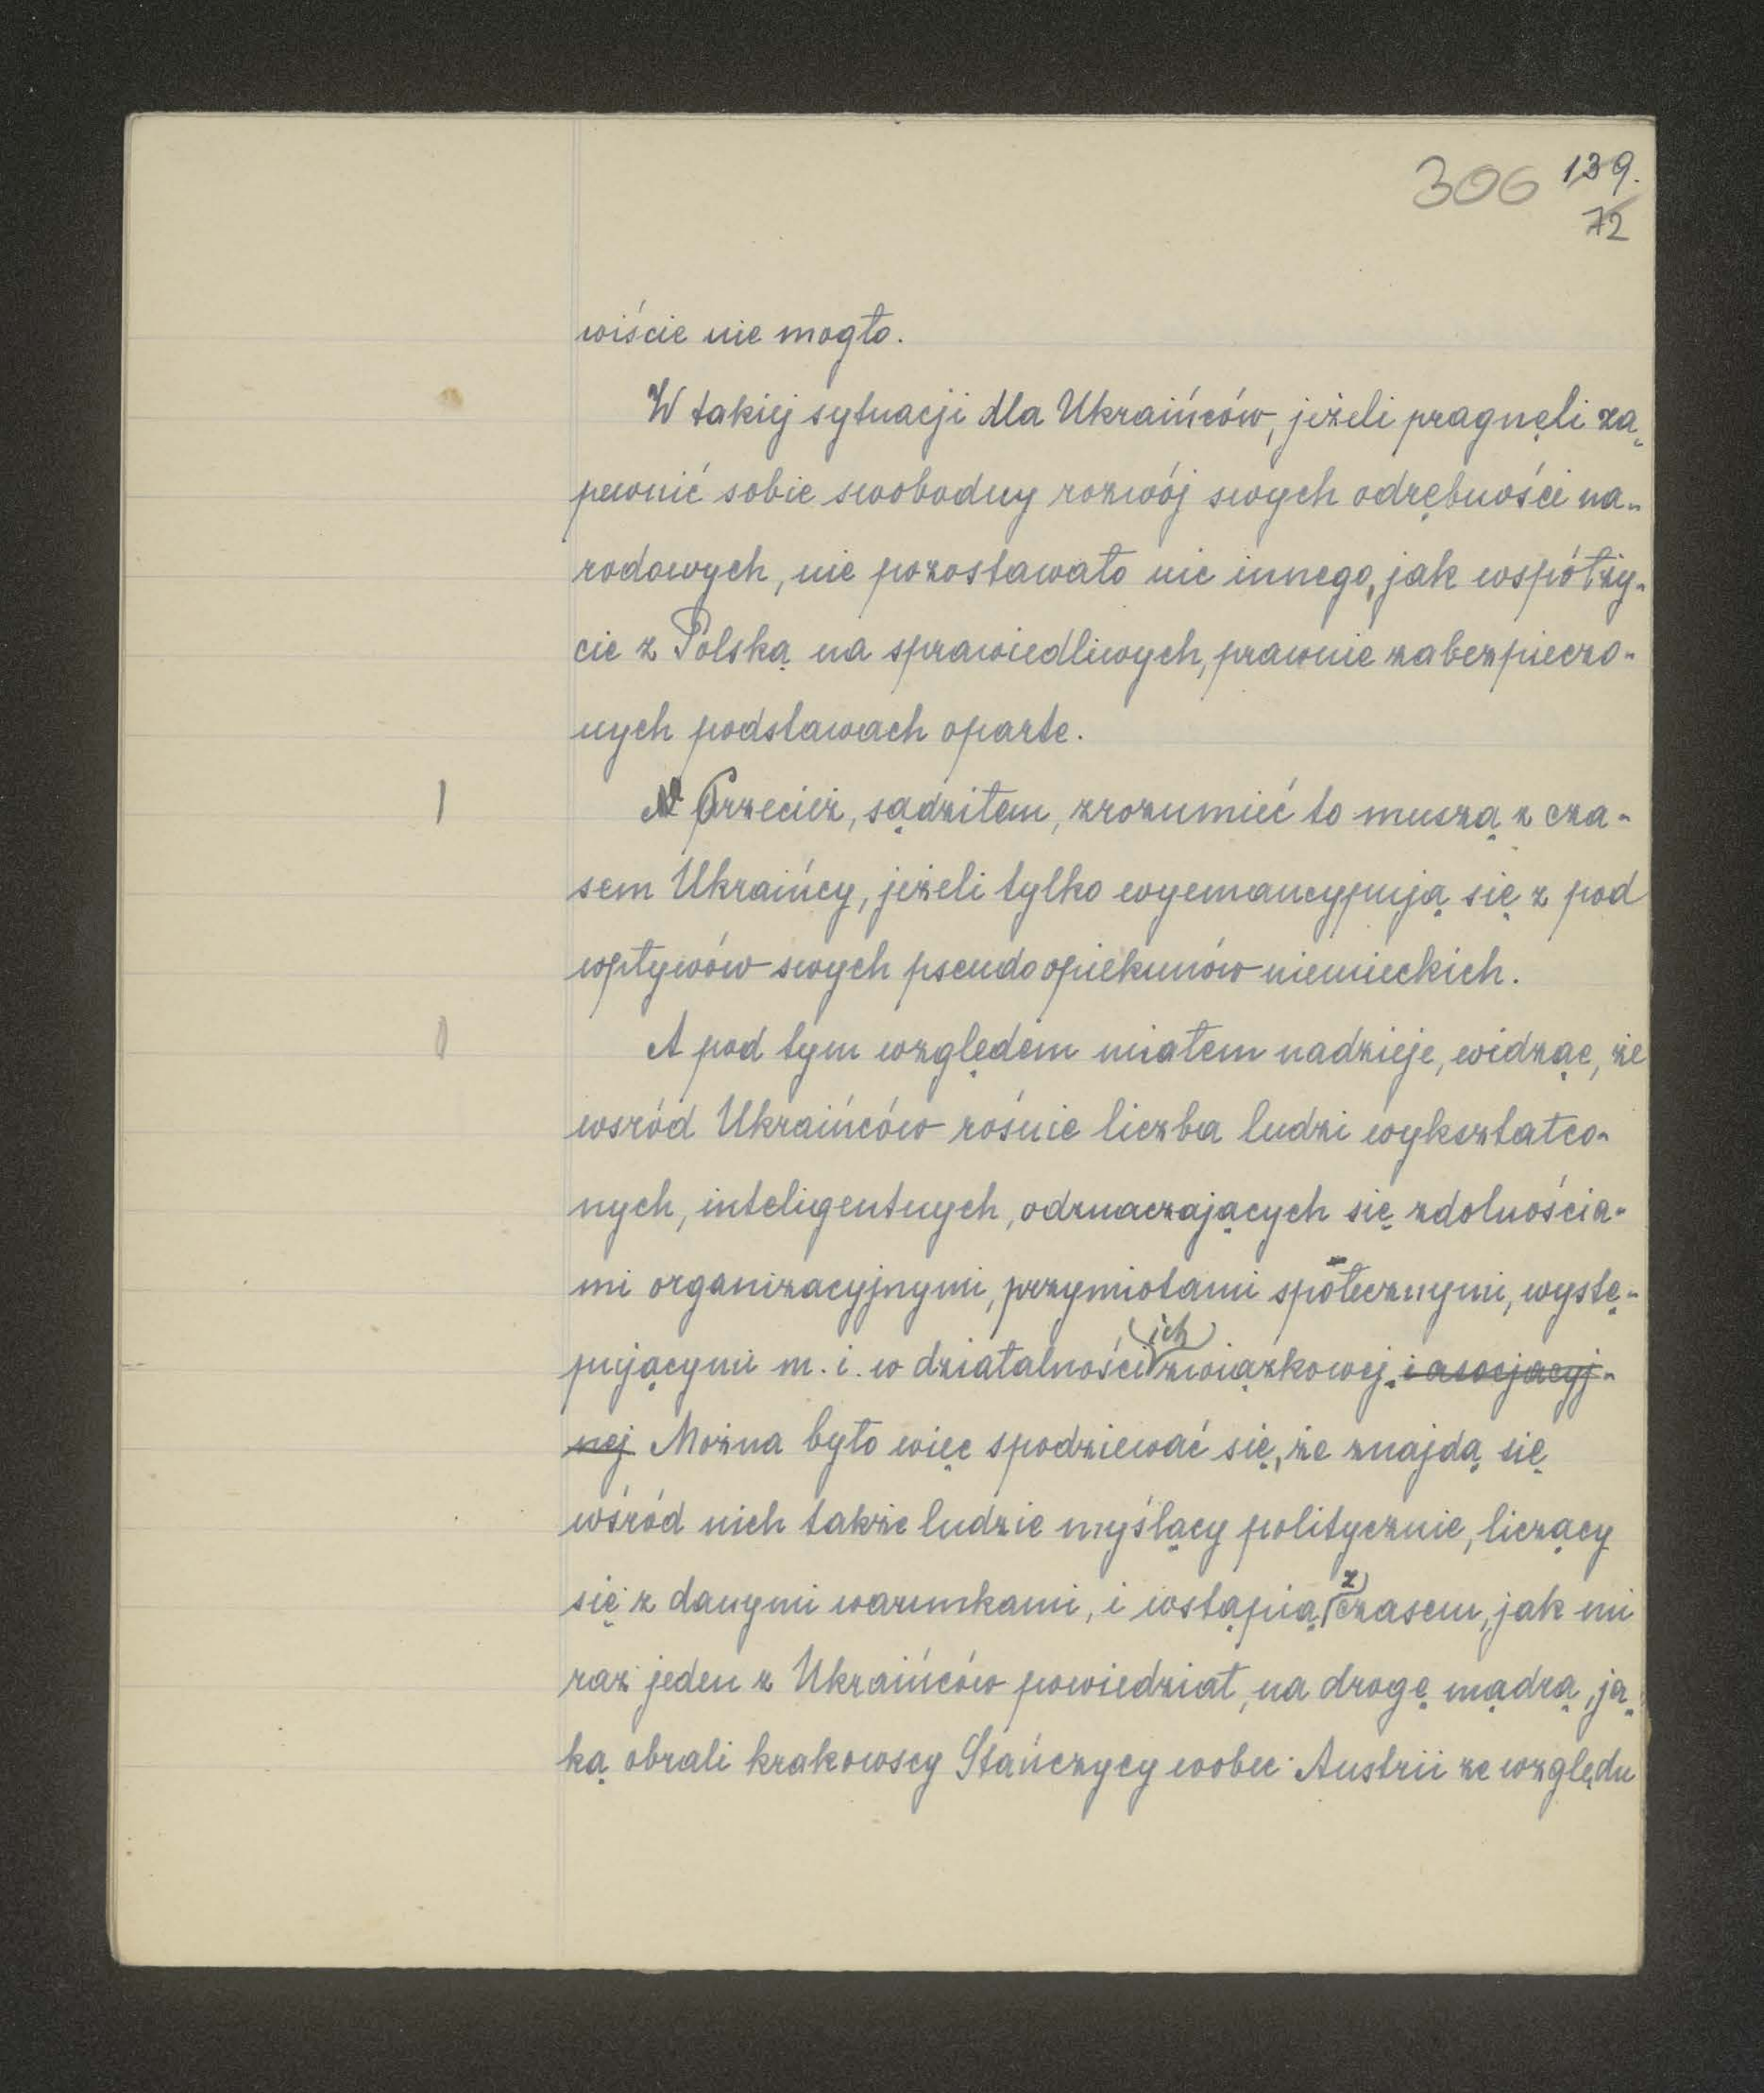 306 139.
72
wiście nie mogło.
W takiej sytuacji dla Ukraińców, jeżeli pragnęli za„
pewnić sobie swobodny rozwój swych odrębności na„
rodowych, nie pozostawało nic innego, jak współży„
cie z Polską na sprawiedliwych, prawnie zabezpieczo„
nych podstawach oparte.
Przecież, sądziłem, zrozumieć to muszą z cza„
sem Ukraińcy, jeżeli tylko wyemancypują się z pod
wpływów swych pseudoopiekunów niemieckich.
A pod tym względem miałem nadzieje, widząc, że
wsród Ukraińców rośnie liczba ludzi wykształco„
nych, inteligentnych, odznaczających się zdolnościa„
mi organizacyjnymi, przymiotami społecznymi, wystę„
pującymi m. i. w działalności ich związkowej. i asocjacyj„
nej Można było więc spodziewać się, że znajdą się
wśród nich także ludzie myślący politycznie, liczący
się z danymi warunkami, i wstąpią z czasem, jak mi
raz jeden z Ukraińców powiedział, na drogę mądrą, ja„
ką obrali krakowscy Stańczycy wobec Austrii ze względu